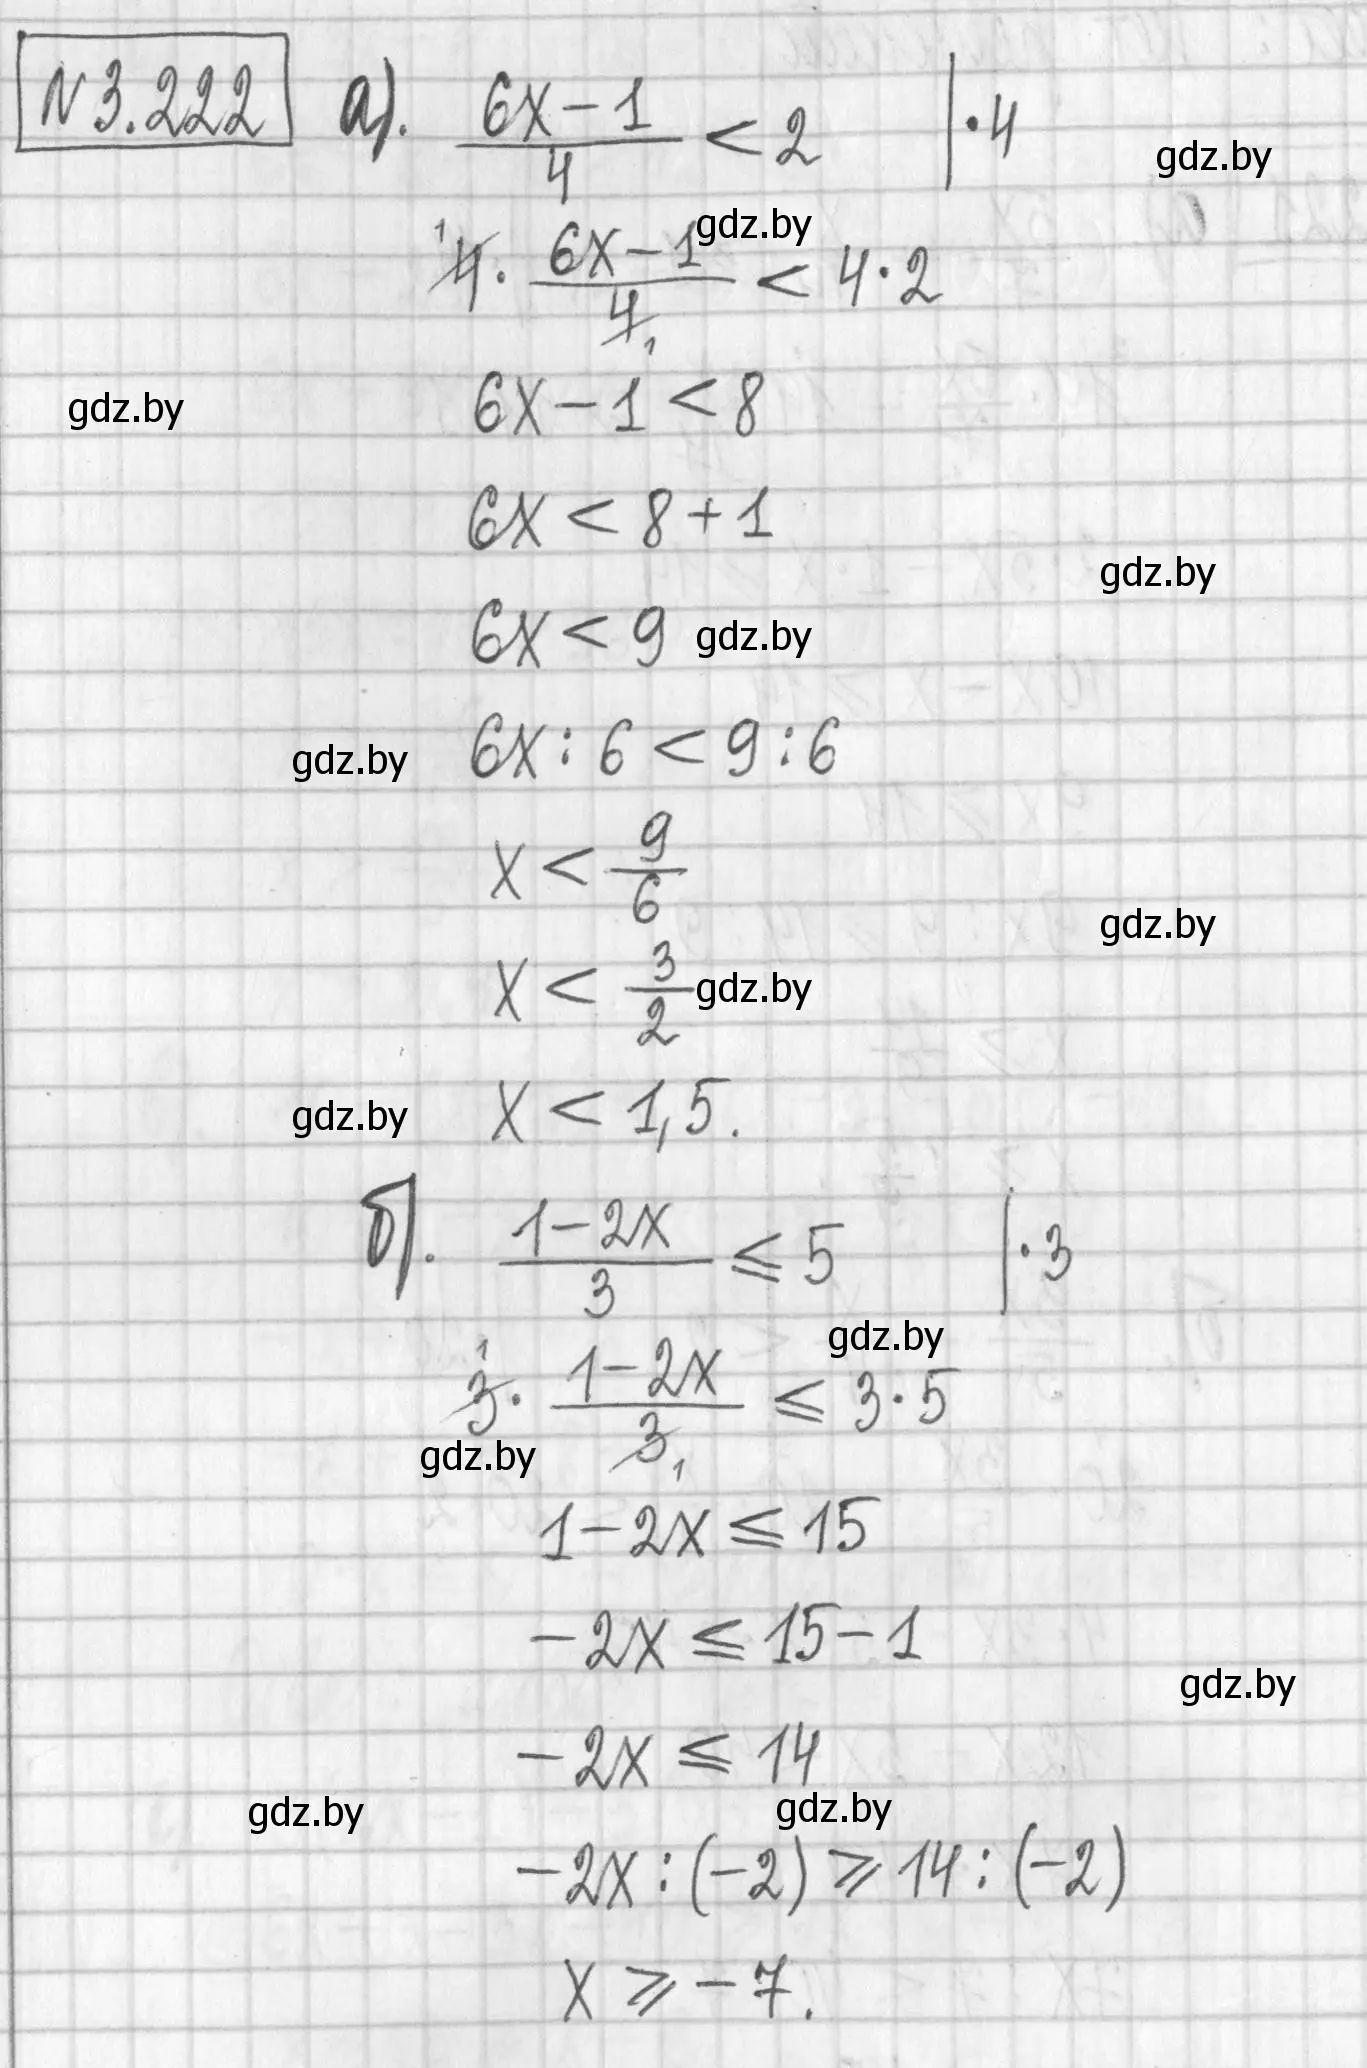 N 3.222 а). (6x-1)/4 < 2 | · 4
gdz.by
gdz.by
¹4 · (6x-1)/4₁ < 4·2
gdz.by
6x-1 < 8
6x < 8+1
gdz.by
6x < 9 gdz.by
gdz.by 6x : 6 < 9 : 6
x < 9/6
gdz.by
x < 3/2 gdz.by
gdz.by x < 1,5.
б). (1-2x)/3 ⩽ 5 | · 3
gdz.by
¹3 · (1-2x)/3₁ ⩽ 3·5
gdz.by
1-2x ⩽ 15
-2x ⩽ 15-1
gdz.by
-2x ⩽ 14
gdz.by gdz.by
-2x : (-2) ⩾ 14 : (-2)
x ⩾ -7.